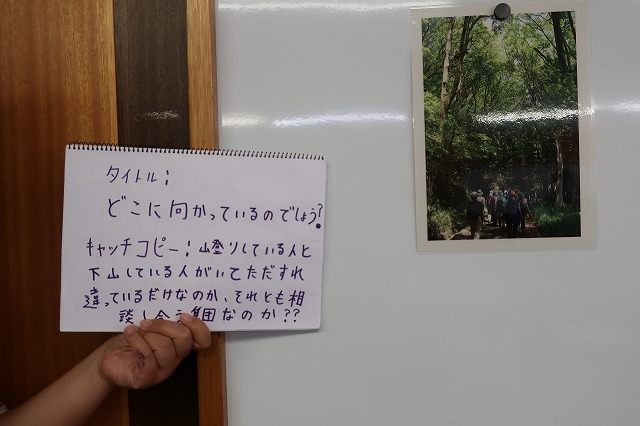 タイトル：
どこに向かっているのでしょう？
キャッチコピー：山登りしている人と
下山している人がいてただすれ
違っているだけなのか、それとも相
談し合う集団なのか？？